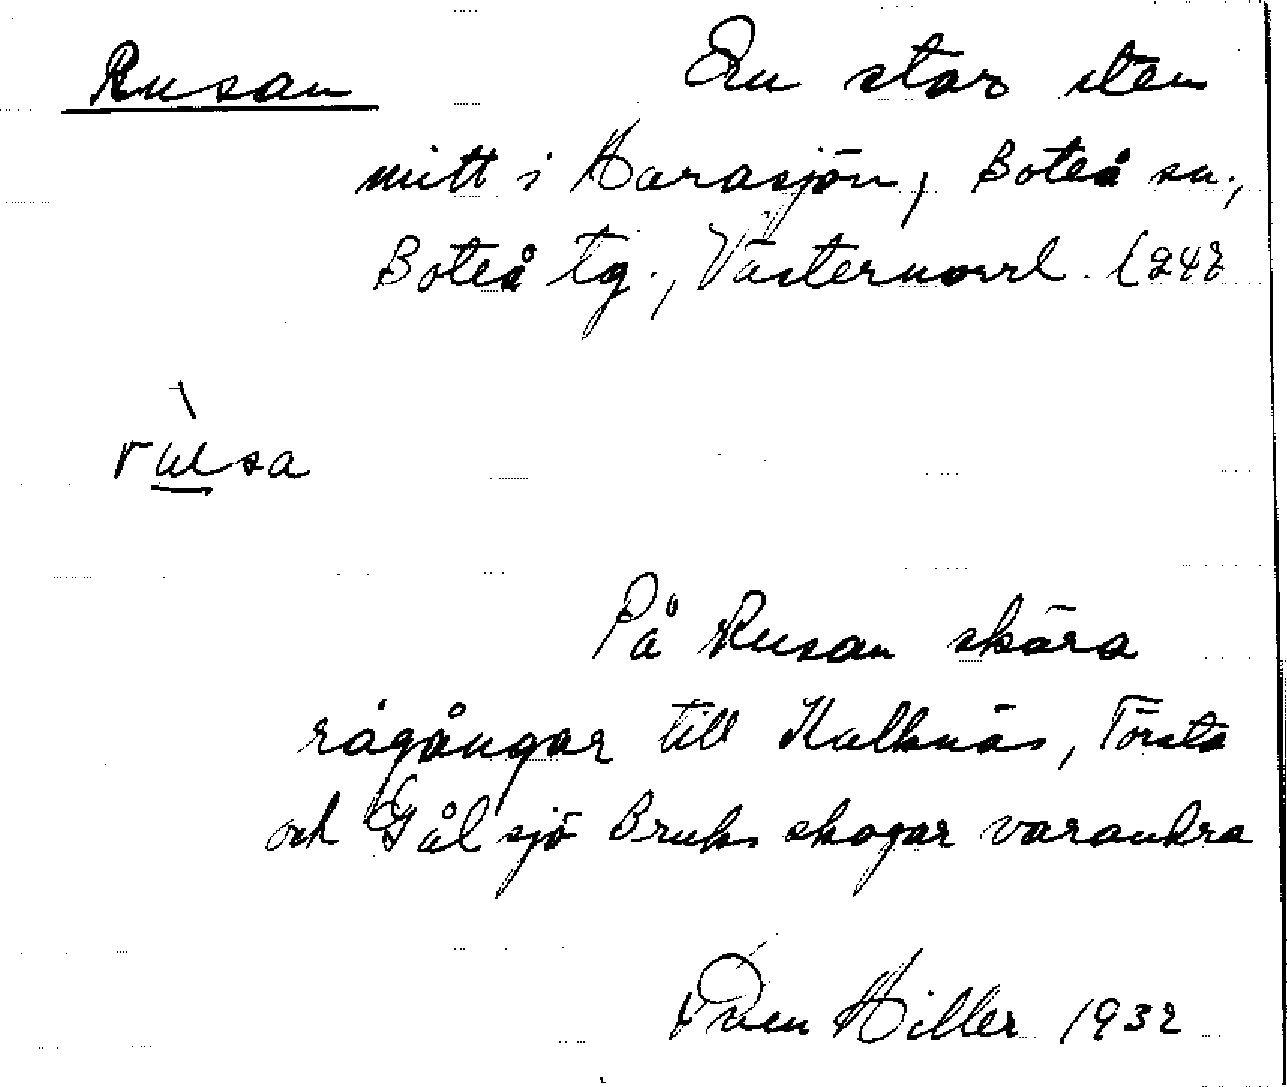 Rusan En stor sten
mitt i Harasjön, Boteå sn.,
Boteå tg., Västernorrl. l 242
rusa
På Rusan skära
rågångar till Kalknäs, Törsta
och Gålsjö Bruks skogar varandra
Sven Hiller 1932